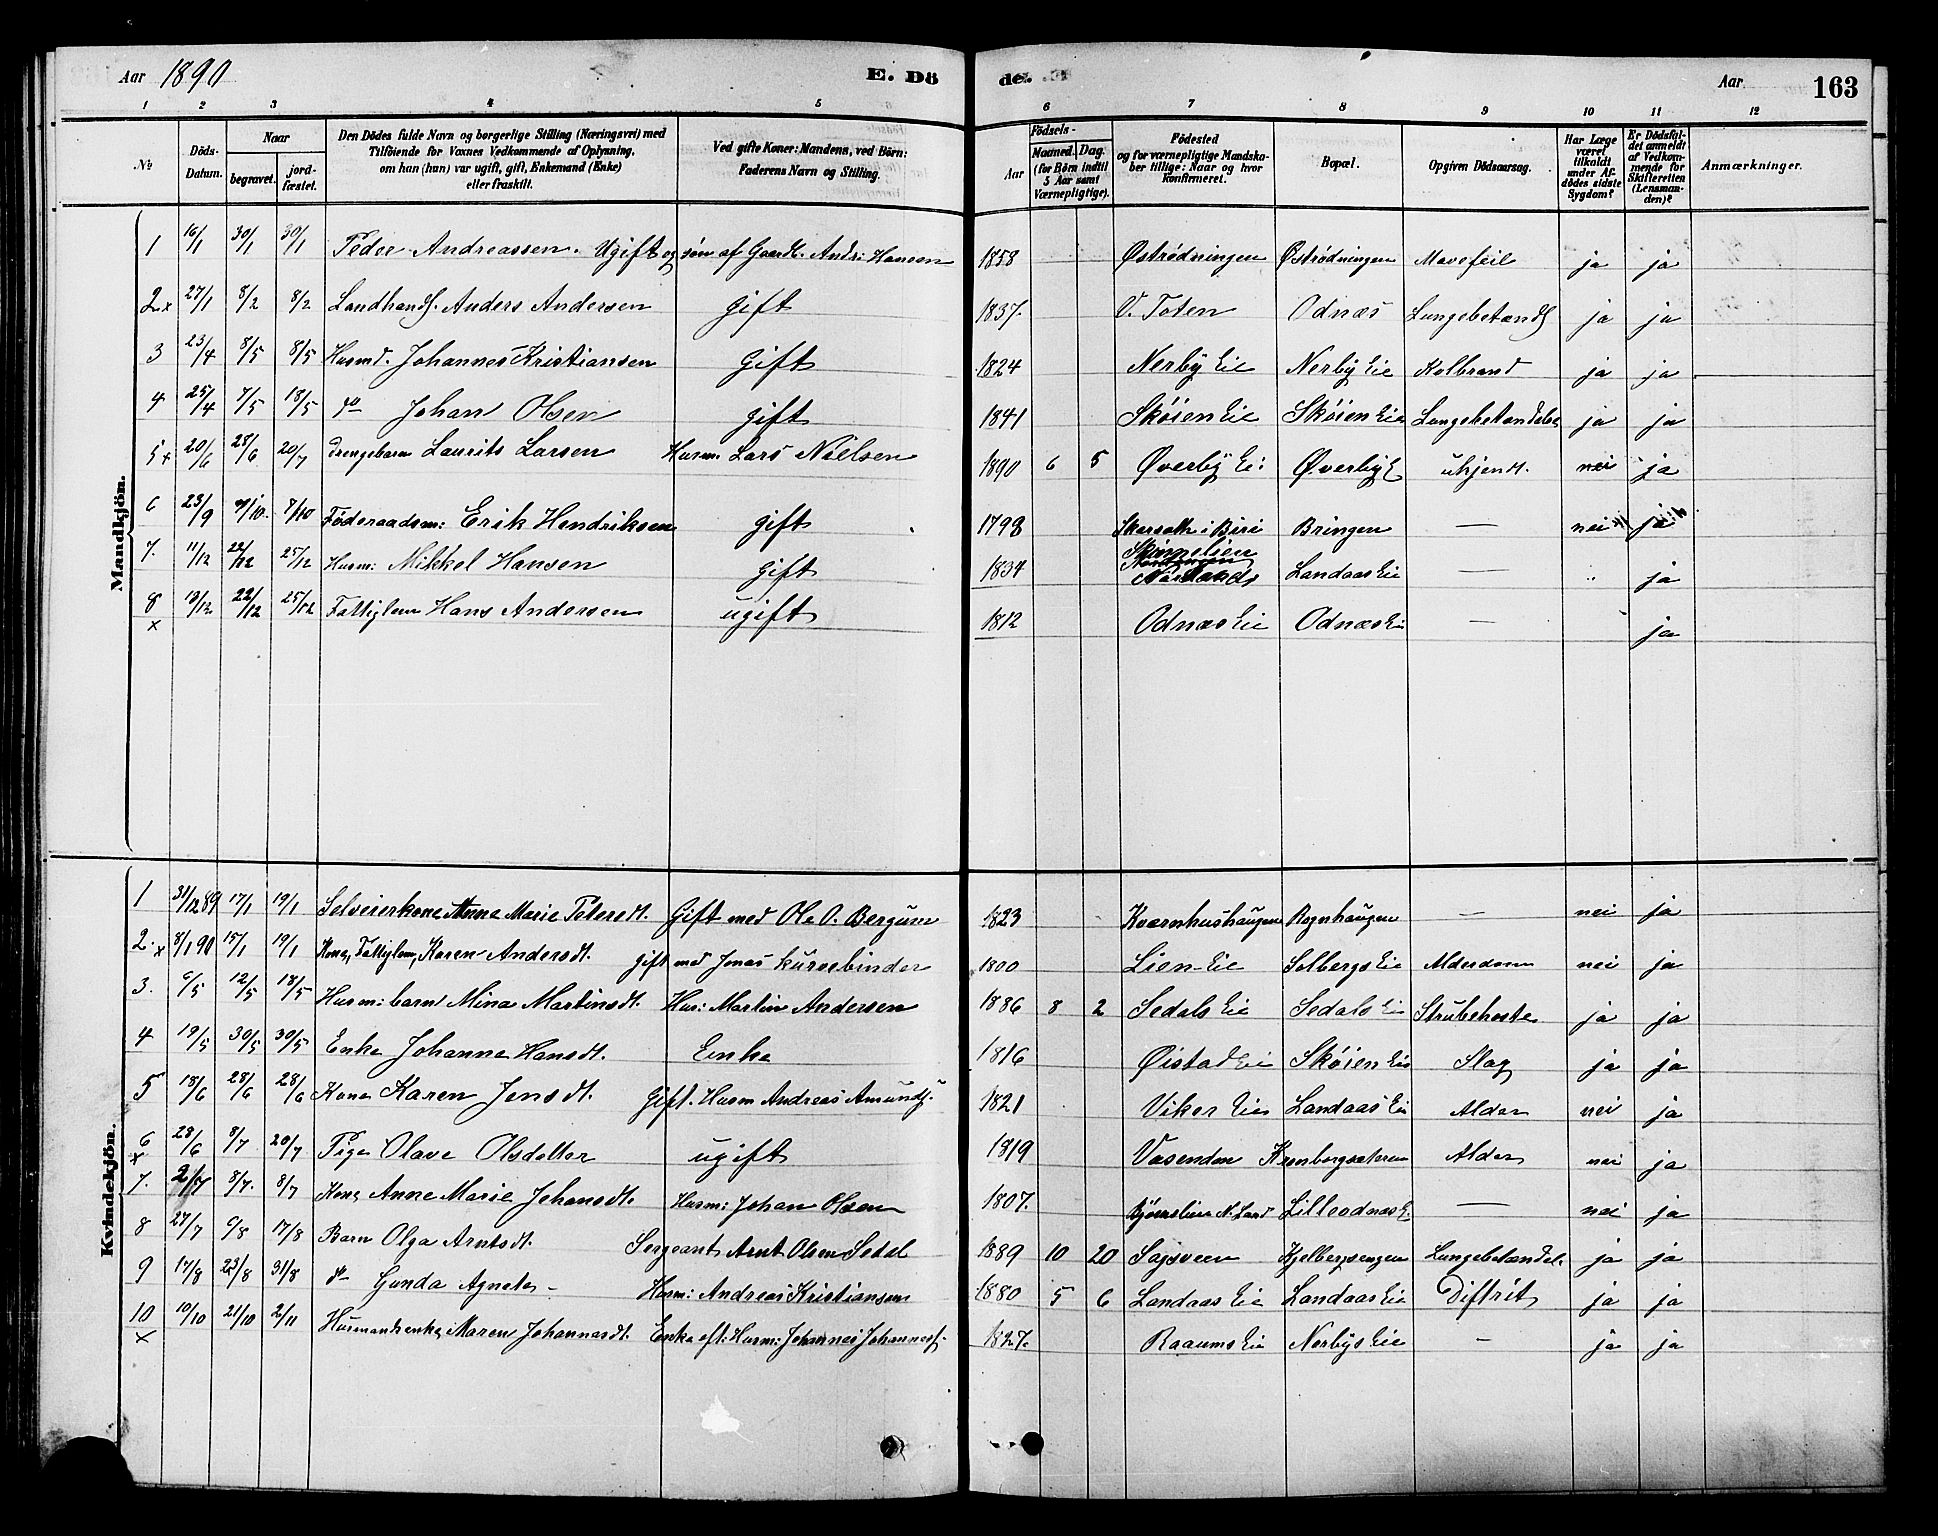 Aar 1890 E. Dö de. Aar 163
1 2 3 4 5 6 7 8 9 10 11 12
No Döds-Datum. Naar begravet. jordfæstet. Den Dödes fulde Navn og borgerlige Stilling (Næringsvei) med Tilföiende for Voxnes Vedkommende af Oplysning, om han (hun) var ugift, gift, Enkemand (Enke) eller fraskilt. Ved gifte Koner: Mandens, ved Börn: Faderens Navn og Stilling. Födsels- Aar Maaned. Dag. (for Börn indtil 5 Aar samt Værnepligtige). Födested og for værnepligtige Mandskaber tillige: Naar og hvor Konfirmeret. Bopæl. Opgiven Dödsaarsag. Har Læge været tilkaldt under Afdödes sidste Sygdom? Er Dödsfaldet anmeldt af Vedkommende for Skifteretten (Lensmanden)? Anmærkninger.
Mandkjön.
1 16/1 30/1 30/1 Peder Andreassen. Ugift og søn af Gaardb. Andr: Hansen 1858 Østrødningen Østrødningen Mavefeil ja ja
2x 27/1 8/2 8/2 Landhandl. Anders Andersen Gift 1837. V. Toten Odnæs Lungebetændl ja ja
3 23/4 8/5 8/5 Husmd. Johannes Kristiansen Gift 1824 Nerby Eie Nerby Eie Kolbrand ja ja
4 25/4 7/5 18/5 do Johan Olsen gift 1841 Skøien Eie Skøien Eie Lungebetændelse ja ja
5x 20/6 28/6 20/7 drengebarn Laurits Larsen Husm: Lars Nielsen 1890 6 5 Øverby Ei: Øverby E ukjendt. nei ja
6 23/9 7/10. 7/10 Føderaadsm: Erik Hendriksen gift 1798 i Biri Bringen — nei ja
7. 11/12 22/12 25/12 Husm: Mikkel Hansen Gift 1834 Skinnelien Nordlands Landaas Eie " ja
8x 13/12 22/12 25/12 Fattiglem Hans Andersen ugift 1812 Odnæs Eie Odnæs Ei — ja
Kvindekjön.
1 31/12 89 17/1 19/1 Selveierkone Anne Marie Petersdt. Gift med Ole O. Bergum 1823 Kvernhushaugen Rognhaugen — nei ja
2.x 8/1 90 15/1 19/1 Kone, Fattiglem, Karen Andersdt. gift med Jonas kurvebinder 1800 Lien Eie Solbergs Eie Alderdom nei ja
3. 6/5 12/5 18/5 Husm: barn Mina Martinsdt. Hus: Martin Andersen 1886 8 2 Sedals Eie Sedals Ei Strubehoste ja ja
4 19/5 30/5 30/5 Enke Johanne Hansdt. Enke 1816 Øistad Eie Skøien Eie Slag ja ja
5 18/6 28/6 28/6 Kone Karen Jensdt. Gift. Husm Andreas Amunds. 1821 Viker Eie Landaas Eie Alder nei ja
6x 28/6 8/7 20/7 Pige Olave Olsdatter ugift 1819 Vasenden Alder nei ja
7. 2/7 8/7. 8/7 Kone Anne Marie Johansdt. Husm: Johan Olsen 1807. Bjørnelien N. Land Lilleodnæs E. — nei ja
8 27/7 6/8 17/8 Barn Olga Arntsdt. Sergeant Arnt Olsen Sedal 1889 10 20 Sagsveen Kjelbergsengen Lungebetændel. ja ja
9 17/8 23/8 31/8 do Gunda Agnete — Husm: Andreas Kristiansen 1880 5 6 Landaas Eie Landaas Eie Diftrit ja ja
10x 10/10 21/10 2/11 Husmandsenke Maren Johannesdt. Enke eft: Husm: Johannes Johannesf. 1827. Raaums Eie Nerbys Eie — ja ja